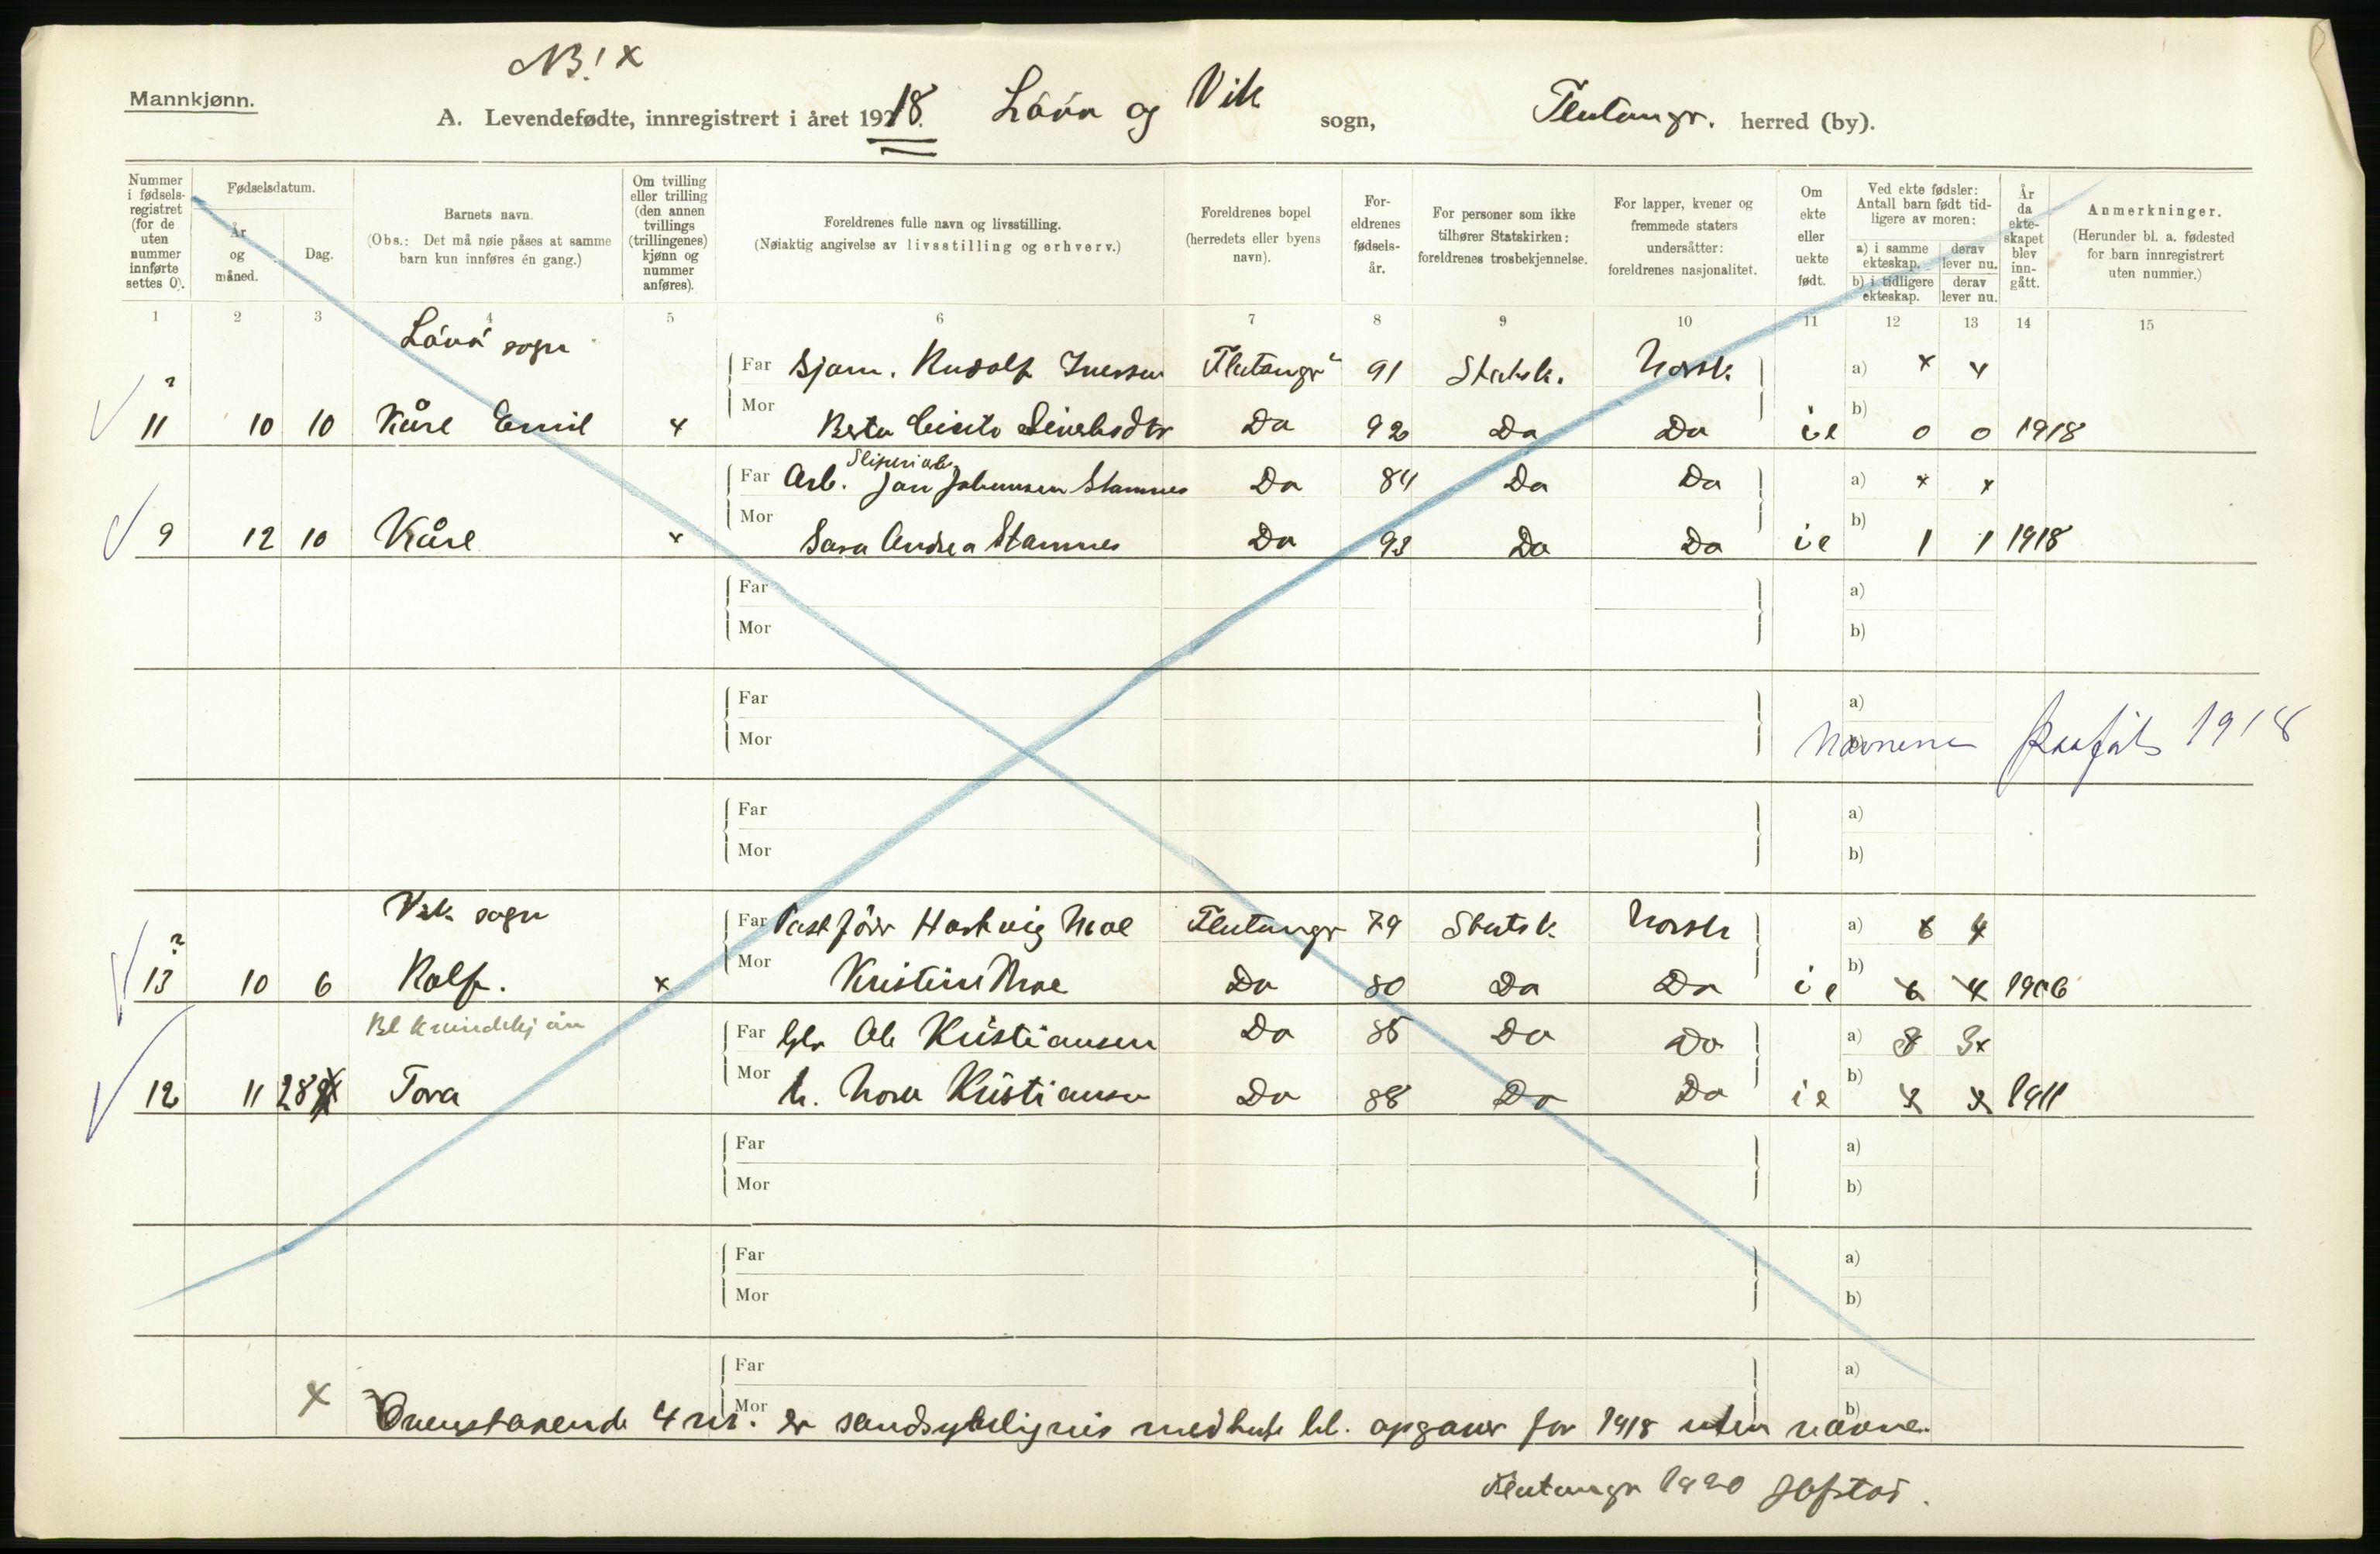 NB! x
Mannkjønn.
A. Levendefødte, innregistrert i året 1918. Lövö og Vik sogn, Flatangr. herred (by).
Nummer i fødselsregistret (for de uten nummer innførte settes 0).
Fødselsdatum.
År og måned.
Dag.
Barnets navn.
(Obs.: Det må nøie påses at samme barn kun innføres én gang.)
Om tvilling eller trilling (den annen tvillings (trillingenes) kjønn og nummer anføres).
Foreldrenes fulle navn og livsstilling.
(Nøiaktig angivelse av livsstilling og erhverv.)
Foreldrenes bopel (herredets eller byens navn).
Foreldrenes fødselsår.
For personer som ikke tilhører Statskirken: foreldrenes trosbekjennelse.
For lapper, kvener og fremmede staters undersåtter: foreldrenes nasjonalitet.
Om ekte eller uekte født.
Ved ekte fødsler: Antall barn født tidligere av moren:
a) i samme ekteskap.
derav lever nu.
b) i tidligere ekteskap.
derav lever nu.
År da ekteskapet blev inngått.
Anmerkninger.
(Herunder bl. a. fødested for barn innregistrert uten nummer.)
1 2 3 4 5 6 7 8 9 10 11 12 13 14 15
Lövö sogn
Far Bjarn. Rudolf Iversen Flatangr 91 Statsk. Norsk a) x x
11 10 10 Kåre Emil x Mor Berta 92 Da Da Da ie b) 0 0 1918
Far Arb. Jan Johansen Stamnes Da 84 Da Da a) x x
9 12 10 Kåre x Mor Sara Andrea Stamnes Da 93 Da Da ie b) 1 1 1918
Far a)
Mor b)
Far a)
Mor b) Navnene 1918
Far a)
Mor b)
Vik sogn
Far Hartvig Moe Flatangr 79 Statsk Norsk a) 6 4
13 10 6 Rolf. x Mor Kristine Moe Da 80 Da Da ie b) 6 4 1906
Bl kvindekjön
Far Ole Kristiansen Da 85 Da Da a) 8 3x
12 11 28 Tora Mor h. Nora Kristiansen Da 88 Da Da ie b) 1911
Far a)
Mor b)
Far a)
Mor b)
Far a)
Mor b)
x Ovenstaaende 4 nr. er sandsynligvis medtat bl. opgaver for 1918 uten navne.
Flatangr 1920 Hofstad.